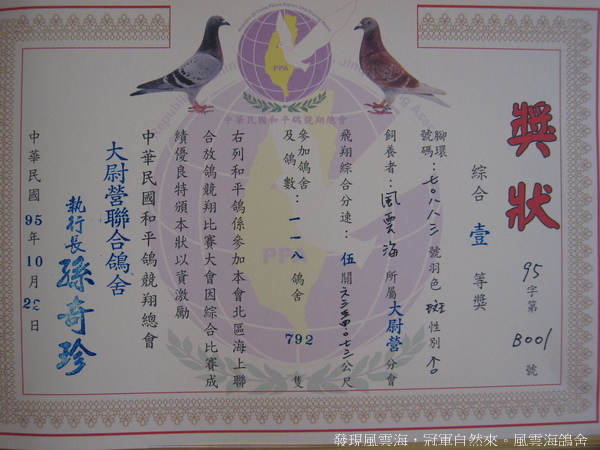 PPA
中華民國和平鴿競翔總會
獎狀
95字第B001號
綜合壹等獎
腳環號碼：七〇八八三號羽色斑性別♂
飼養者：風雲海所屬大尉營分會
飛翔綜合分速：伍關
公尺
參加鴿舍及鴿數：一一八鴿舍792隻
右列和平鴿係參加本會北區海上聯
合放鴿競翔比賽大會因綜合比賽成
績優良特頒本狀以資激勵
中華民國和平鴿競翔總會
大尉營聯合鴿舍
執行長孫奇珍
中華民國95年10月22日
PPA
發現風雲海，冠軍自然來。風雲海鴿舍